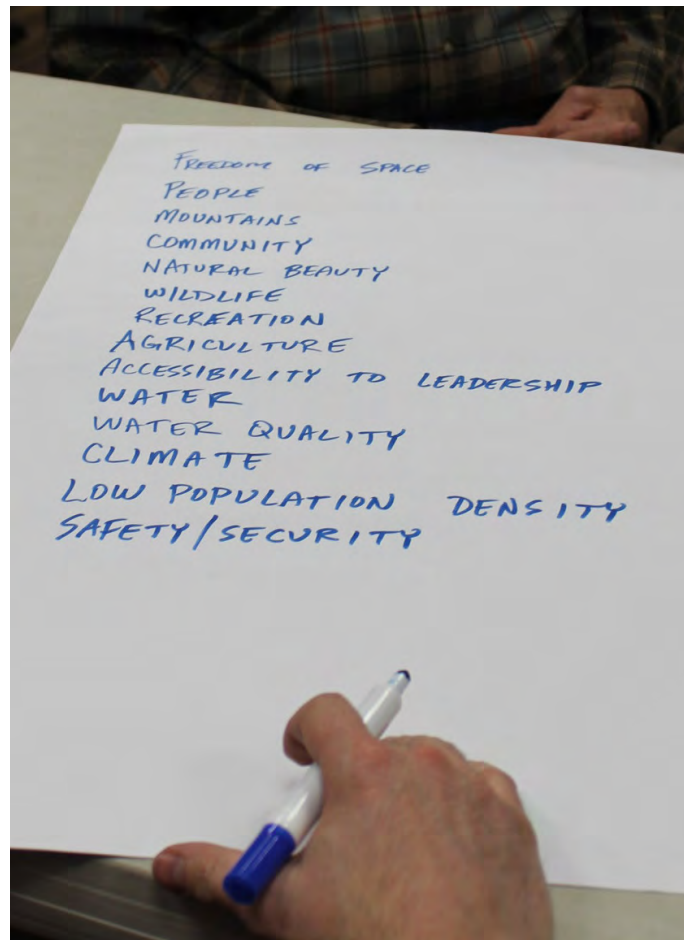 FREEDOM OF SPACE
PEOPLE
MOUNTAINS
COMMUNITY
NATURAL BEAUTY
WILDLIFE
RECREATION
AGRICULTURE
ACCESSIBILITY TO LEADERSHIP
WATER
WATER QUALITY
CLIMATE
LOW POPULATION DENSITY
SAFETY/SECURITY